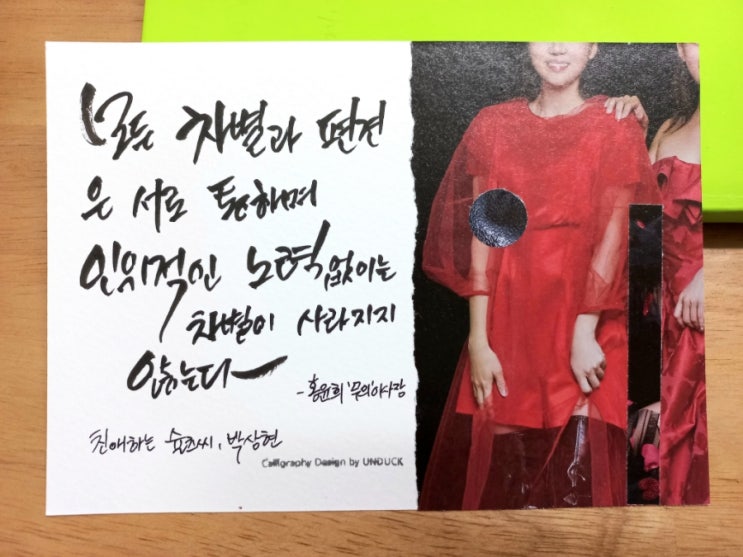 모든 차별과 편견
은 서로 통하며
인위적인 노력 없이는
차별이 사라지지
않는다
- 홍윤희 '무의' 이사장
친애하는 슐츠씨, 박상현
Calligraphy Design by UNDUCK